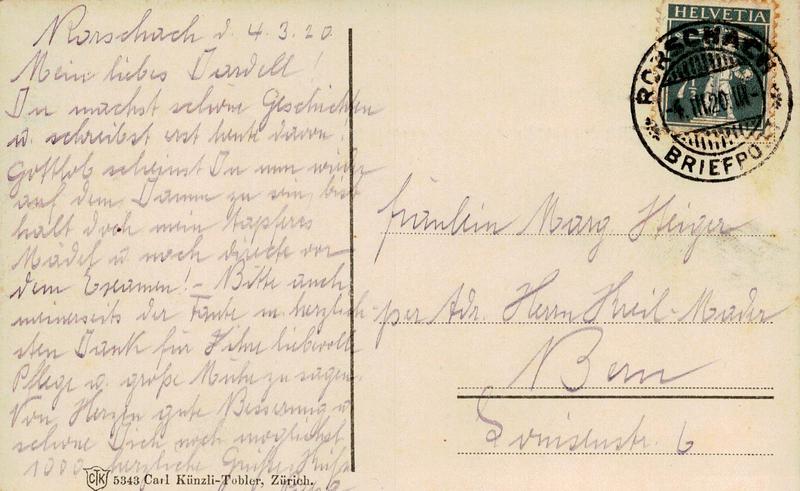 Rorschach d. 4.3.20.
Mein liebes Dardell!
Du machst schöne Geschichten
u. schreibst erst heute davon.
Gottlob scheinst Du nun wieder
auf dem Damm zu sein, bist
halt doch mein tapferes
Mädel u. noch directe vor
dem Examen! - Bitte auch
meinerseits der Tante m. herzlich-
sten Dank für Ihre liebevolle
Pflege u. große Mühe zu sagen.
Von Herzen gute Besserung u.
schone Dich noch möglichst
1000 herzliche Grüße Küsse
CTK 5343 Carl Künzli-Tobler, Zürich.
HELVETIA
RORSCHACH
BRIEFPO
Fräulein Marg Steiger
per Adr. Herrn Kreil-Mader
Bern
Louisenstr. 6